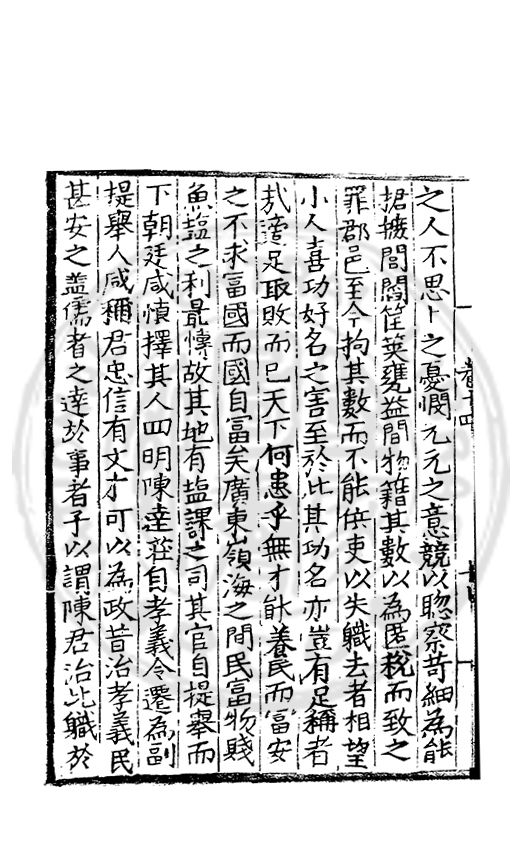 之人不思上之憂憫元元之意競以聰察苛細為能
搶攘閭閻筐筴甕盎間物籍其數以為匿稅而致之
罪郡邑至今拘其數而不能供吏以失職去者相望
小人喜功好名之害至於此其功名亦豈有足稱者
㢤適足取敗而已天下何患乎無才能養民而富安
之不求富國而國自富矣廣東嶺海之間民富物賤
魚塩之利最懐故其地有塩課之司其官自提舉而
下朝廷咸慎擇其人四明陳達莊自孝義令遷為副
提舉人咸稱君忠信有文才可以為政昔治孝義民
甚安之盖儒者之達於事者予以謂陳君治此職於